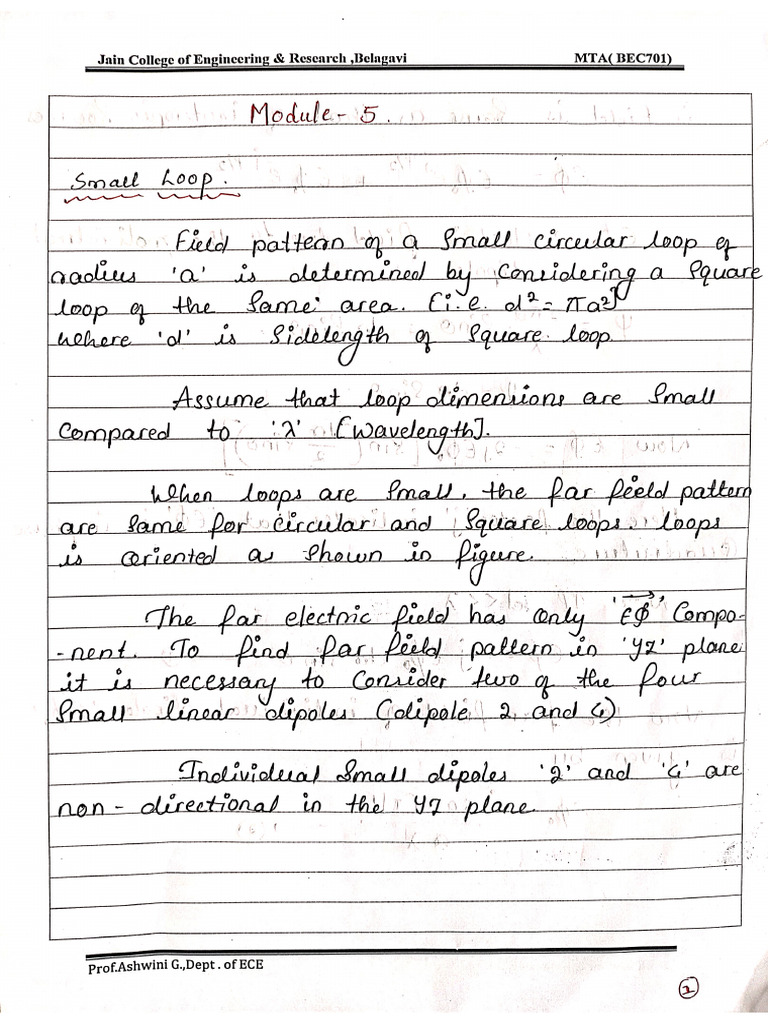 Jain College of Engineering & Research ,Belagavi MTA( BEC701)
Module - 5.
Small Loop.
Field pattern of a Small circular loop of
radius 'a' is determined by Considering a Square
loop of the Same area. [i.e. d² = πa²]
Where 'd' is Sidelength of Square loop.
Assume that loop dimensions are Small
Compared to 'λ' [Wavelength].
When loops are Small, the far field pattern
are Same for circular and Square loops. loops
is oriented as Shown in figure.
The far electric field has Only 'Eφ' Compo-
-nent. To find far field pattern in 'YZ' plane
it is necessary to Consider two of the four
Small linear dipoles (dipole 2 and 4)
Individual Small dipoles '2' and '4' are
non-directional in the YZ plane.
Prof.Ashwini G.,Dept . of ECE